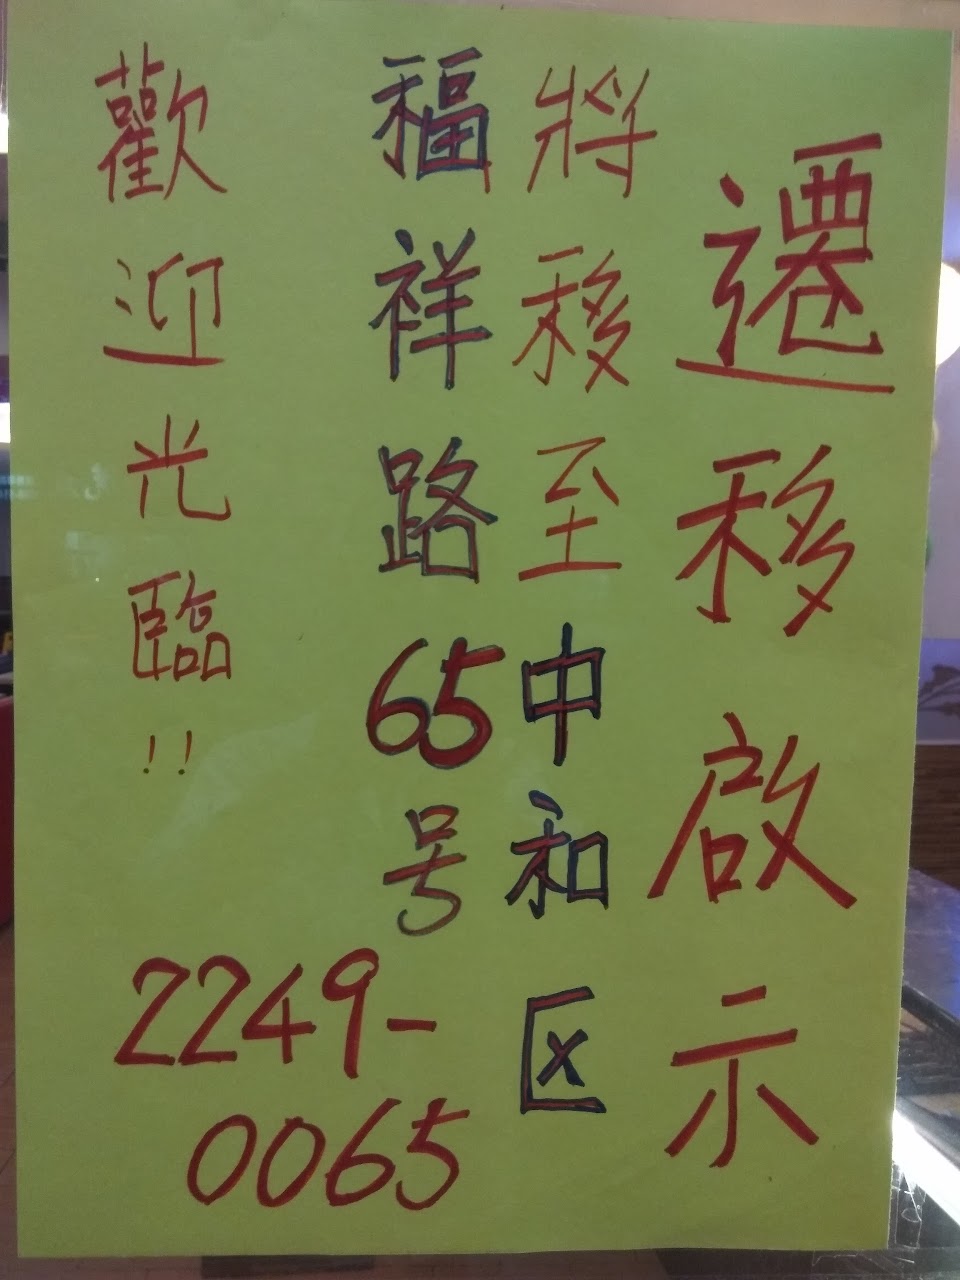 遷移啟示
將移至中和区
福祥路65号
歡迎光臨!!
2249-
0065